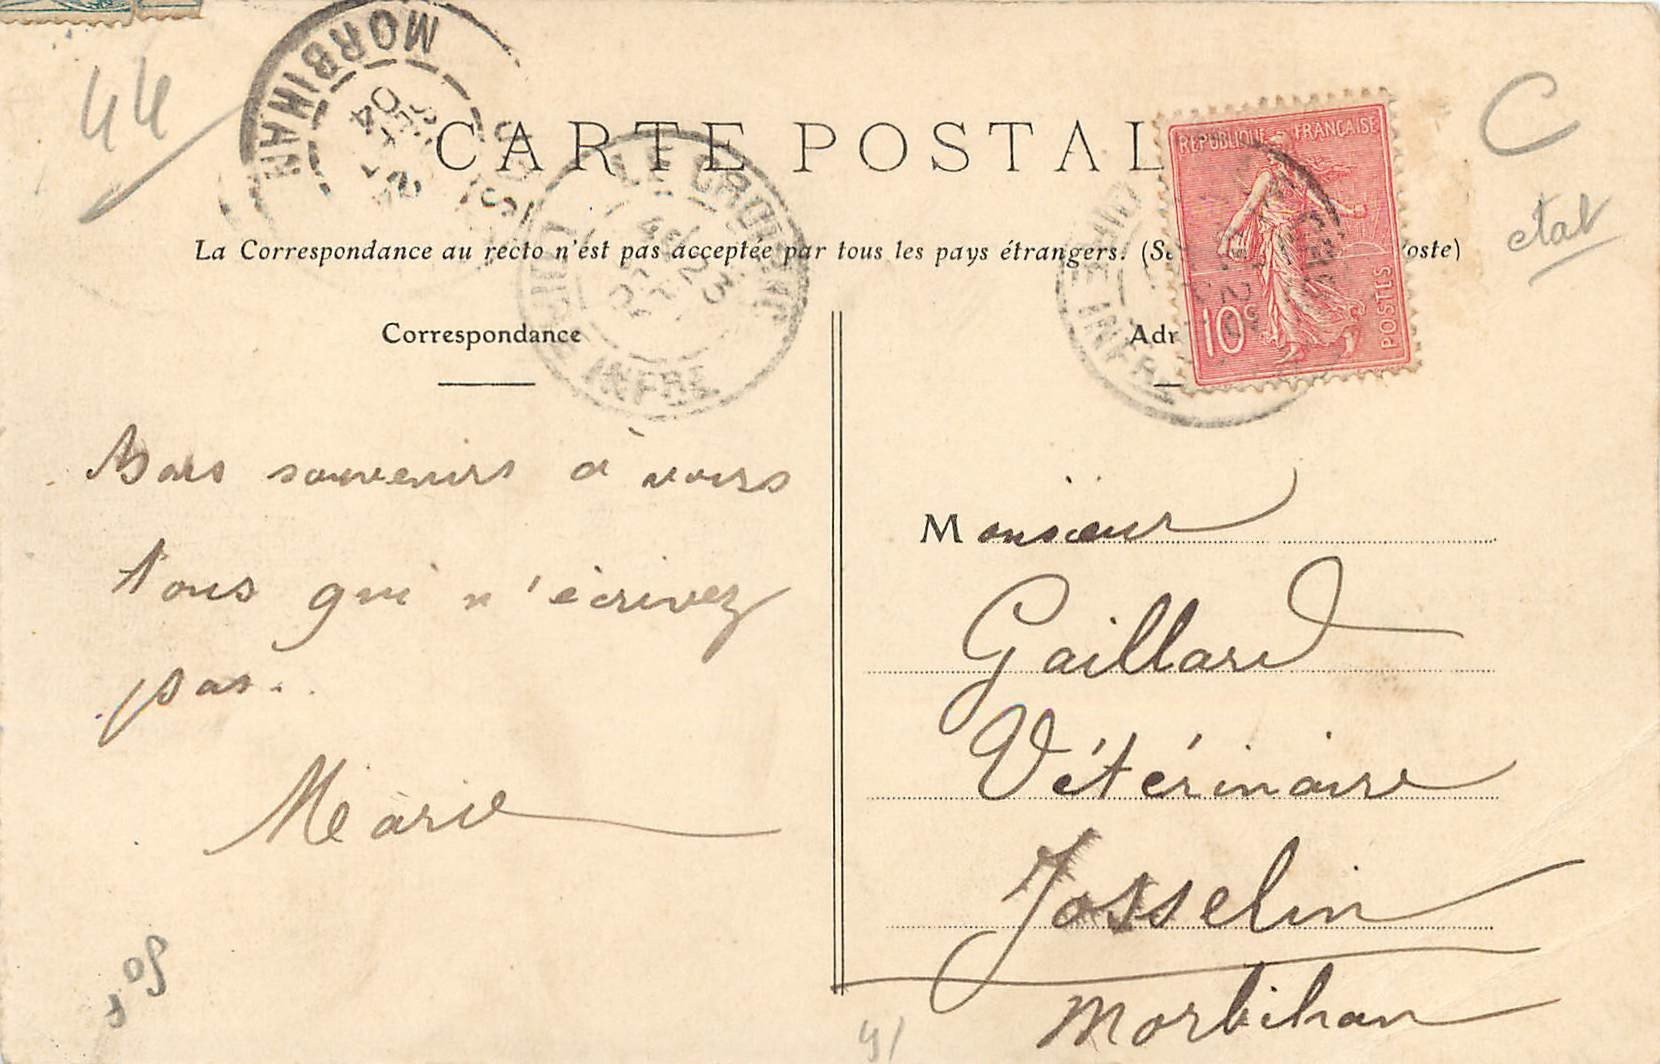 44
MORBIHAN
CARTE POSTAL
C
REPUBLIQUE FRANÇAISE
etat
LE CROISIC
LOIRE INFRE
23
La Correspondance au recto n'est pas acceptée par tous les pays étrangers. (Se
oste)
10c
POSTES
INFRE
Correspondance
Adr
Bons souvenirs à vous
tous qui n'écrivez
pas..
Marie
Monsieur
Gaillard
Vétérinaire
Josselin
Morbihan